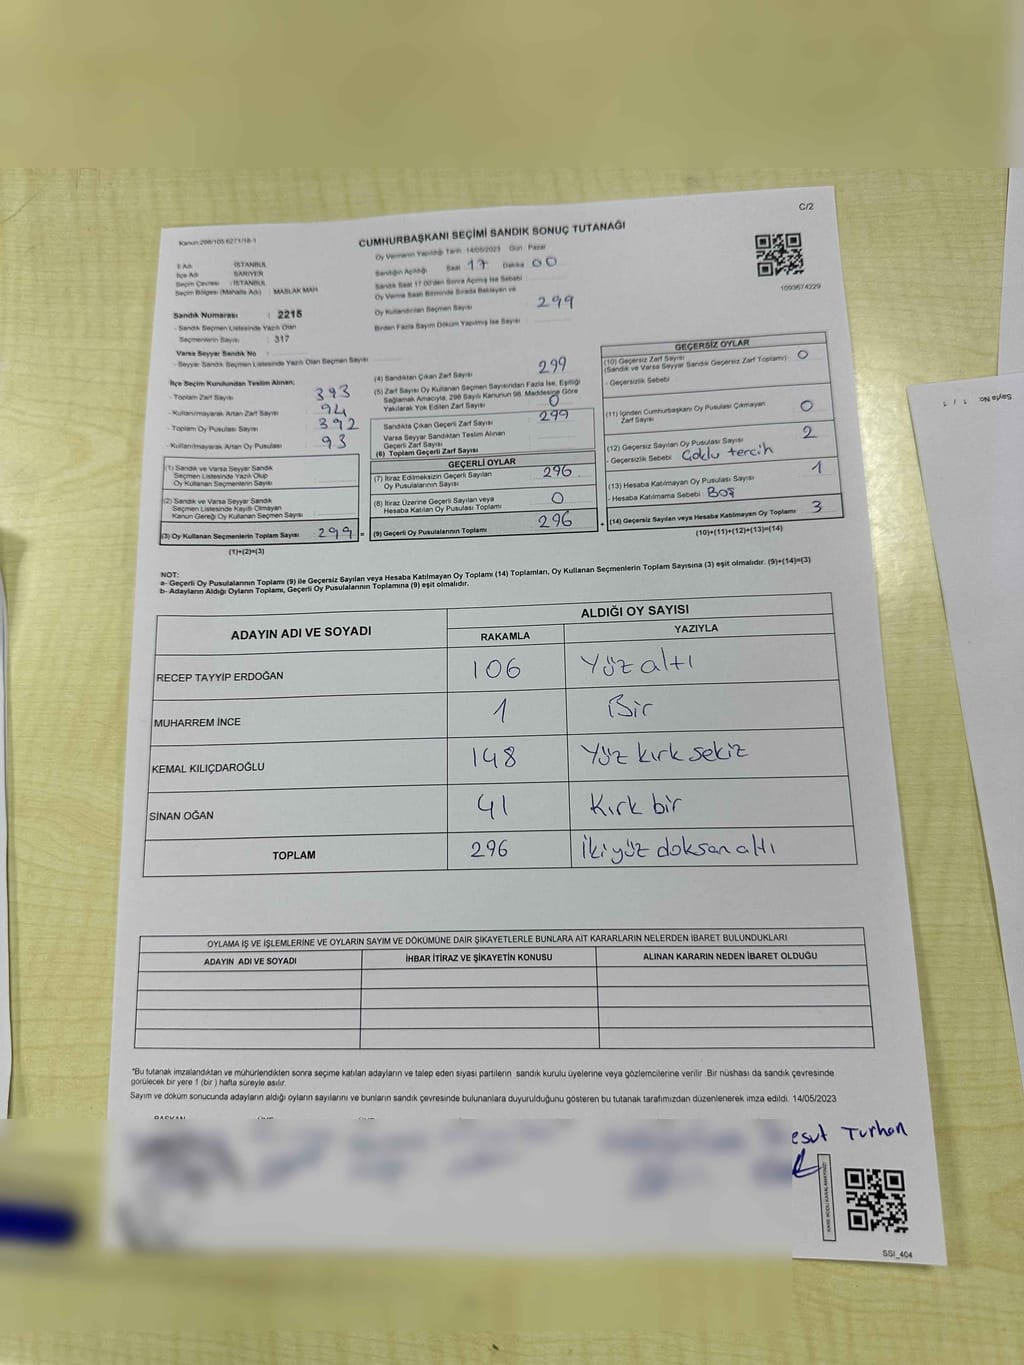 C/2
Kanun:298/105 6271/18-1
CUMHURBAŞKANI SEÇİMİ SANDIK SONUÇ TUTANAĞI
Oy Vermenin Yapıldığı Tarih :14/05/2023 Gün : Pazar
İl Adı : İSTANBUL
İlçe Adı : SARIYER
Seçim Çevresi : İSTANBUL
Seçim Bölgesi (Mahalle Adı) : MASLAK MAH
Sandık Numarası : 2215
- Sandık Seçmen Listesinde Yazılı Olan
Seçmenlerin Sayısı : 317
Varsa Seyyar Sandık No :
- Seyyar Sandık Seçmen Listesinde Yazılı Olan Seçmen Sayısı
İlçe Seçim Kurulundan Teslim Alınan;
- Toplam Zarf Sayısı 393
- Kullanılmayarak Artan Zarf Sayısı 94
- Toplam Oy Pusulası Sayısı 392
- Kullanılmayarak Artan Oy Pusulası 93
(1) Sandık ve Varsa Seyyar Sandık
Seçmen Listesinde Yazılı Olup
Oy Kullanan Seçmenlerin Sayısı
(2) Sandık ve Varsa Seyyar Sandık
Seçmen Listesinde Kayıtlı Olmayan
Kanun Gereği Oy Kullanan Seçmen Sayısı
(3) Oy Kullanan Seçmenlerin Toplam Sayısı 299 =
(1)+(2)=(3)
Sandığın Açıldığı Saat 17 Dakika 00
Sandık Saat 17:00'den Sonra Açılmış İse Sebebi
Oy Verme Saati Bitiminde Sırada Bekleyen ve
Oy Kullandırılan Seçmen Sayısı 299
Birden Fazla Sayım Döküm Yapılmış İse Sayısı
(4) Sandıktan Çıkan Zarf Sayısı 299
(5) Zarf Sayısı Oy Kullanan Seçmen Sayısından Fazla İse, Eşitliği
Sağlamak Amacıyla, 298 Sayılı Kanunun 98. Maddesine Göre
Yakılarak Yok Edilen Zarf Sayısı 0
Sandıkta Çıkan Geçerli Zarf Sayısı 299
Varsa Seyyar Sandıktan Teslim Alınan
Geçerli Zarf Sayısı
(6) Toplam Geçerli Zarf Sayısı
GEÇERLİ OYLAR
(7) İtiraz Edilmeksizin Geçerli Sayılan
Oy Pusulalarının Sayısı 296
(8) İtiraz Üzerine Geçerli Sayılan veya
Hesaba Katılan Oy Pusulası Toplamı 0
(9) Geçerli Oy Pusulalarının Toplamı 296 +
1093674229
GEÇERSİZ OYLAR
(10) Geçersiz Zarf Sayısı 0
(Sandık ve Varsa Seyyar Sandık Geçersiz Zarf Toplamı)
- Geçersizlik Sebebi
(11) İçinden Cumhurbaşkanı Oy Pusulası Çıkmayan
Zarf Sayısı 0
(12) Geçersiz Sayılan Oy Pusulası Sayısı 2
- Geçersizlik Sebebi Çoklu tercih
(13) Hesaba Katılmayan Oy Pusulası Sayısı 1
- Hesaba Katılmama Sebebi Boş
(14) Geçersiz Sayılan veya Hesaba Katılmayan Oy Toplamı 3
(10)+(11)+(12)+(13)=(14)
NOT:
a- Geçerli Oy Pusulalarının Toplamı (9) ile Geçersiz Sayılan veya Hesaba Katılmayan Oy Toplamı (14) Toplamları, Oy Kullanan Seçmenlerin Toplam Sayısına (3) eşit olmalıdır. (9)+(14)=(3)
b- Adayların Aldığı Oyların Toplamı, Geçerli Oy Pusulalarının Toplamına (9) eşit olmalıdır.
ADAYIN ADI VE SOYADI ALDIĞI OY SAYISI
RAKAMLA YAZIYLA
RECEP TAYYİP ERDOĞAN 106 Yüz altı
MUHARREM İNCE 1 Bir
KEMAL KILIÇDAROĞLU 148 Yüz kırk sekiz
SİNAN OĞAN 41 Kırk bir
TOPLAM 296 İki yüz doksan altı
OYLAMA İŞ VE İŞLEMLERİNE VE OYLARIN SAYIM VE DÖKÜMÜNE DAİR ŞİKAYETLERLE BUNLARA AİT KARARLARIN NELERDEN İBARET BULUNDUKLARI
ADAYIN ADI VE SOYADI İHBAR İTİRAZ VE ŞİKAYETİN KONUSU ALINAN KARARIN NEDEN İBARET OLDUĞU
*Bu tutanak imzalandıktan ve mühürlendikten sonra seçime katılan adayların ve talep eden siyasi partilerin sandık kurulu üyelerine veya gözlemcilerine verilir .Bir nüshası da sandık çevresinde
görülecek bir yere 1 (bir ) hafta süreyle asılır.
Sayım ve döküm sonucunda adayların aldığı oyların sayılarını ve bunların sandık çevresinde bulunanlara duyurulduğunu gösteren bu tutanak tarafımızdan düzenlenerek imza edildi. 14/05/2023
BAŞKAN
esut Turhan
SSI_404
Sayfa No: 1 / 1